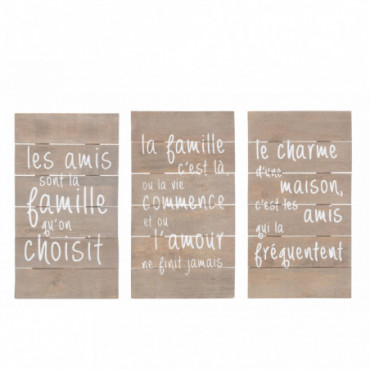 les amis
sont la
famille
qu'on
choisit
la famille
c'est là,
ou la vie
commence
et ou
l'amour
ne finit jamais
le charme
d'une
maison,
c'est les
amis
qui la
fréquentent